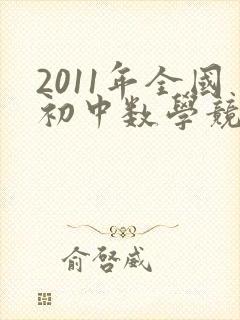 2011年全國
初中数學競
俞啓威